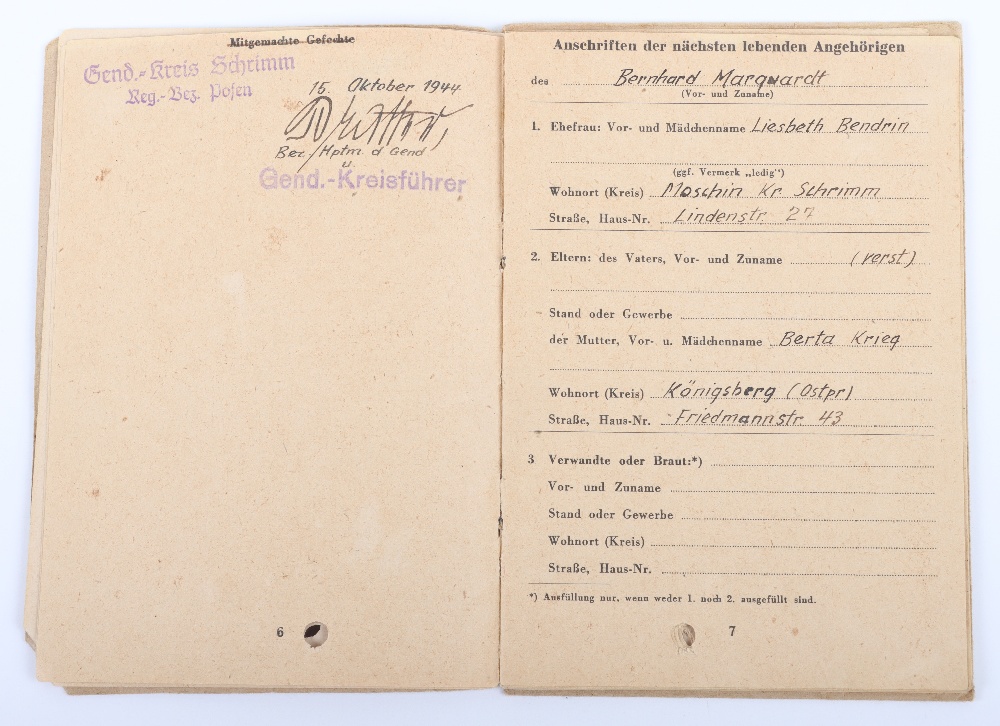 Mitgemachte Gefechte
Gend.-Kreis Schrimm
Reg.-Bez. Posen
15. Oktober 1944
Bez./Hptm d Gend
u.
Gend.-Kreisführer
6
Anschriften der nächsten lebenden Angehörigen
des Bernhard Marquardt
(Vor- und Zuname)
1. Ehefrau: Vor- und Mädchenname Liesbeth Bendrin
(ggf. Vermerk „ledig")
Wohnort (Kreis) Moschin Kr. Schrimm
Straße, Haus-Nr. Lindenstr. 27
2. Eltern: des Vaters, Vor- und Zuname (verst)
Stand oder Gewerbe
der Mutter, Vor- u. Mädchenname Berta Krieg
Wohnort (Kreis) Königsberg (Ostpr)
Straße, Haus-Nr. Friedmannstr. 43
3 Verwandte oder Braut:*)
Vor- und Zuname
Stand oder Gewerbe
Wohnort (Kreis)
Straße, Haus-Nr.
*) Ausfüllung nur, wenn weder 1. noch 2. ausgefüllt sind.
7